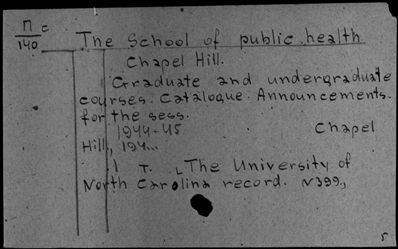 П =
140
The School of public health
Chapel Hill.
Graduate and undergraduate
courses. Catalogue. Announcements.
for the sess.
1944-45 Chapel
Hill, 194...
1 т. (The University of
North Carolina record. N399,
5